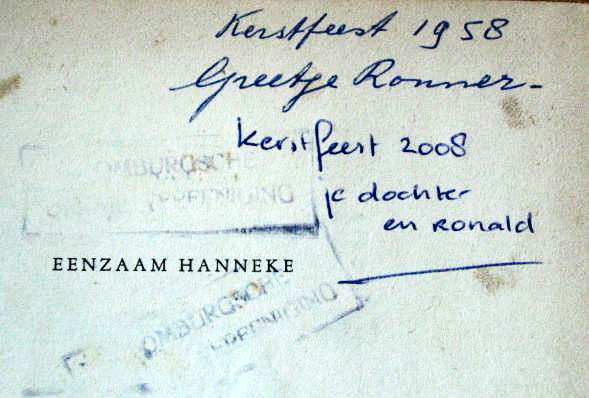 Kerstfeest 1958
Greetje Ronner-
Kerstfeest 2008
je dochter
en Ronald
OMBURGSCHE
EENZAAM HANNEKE
OMBURGSCHE